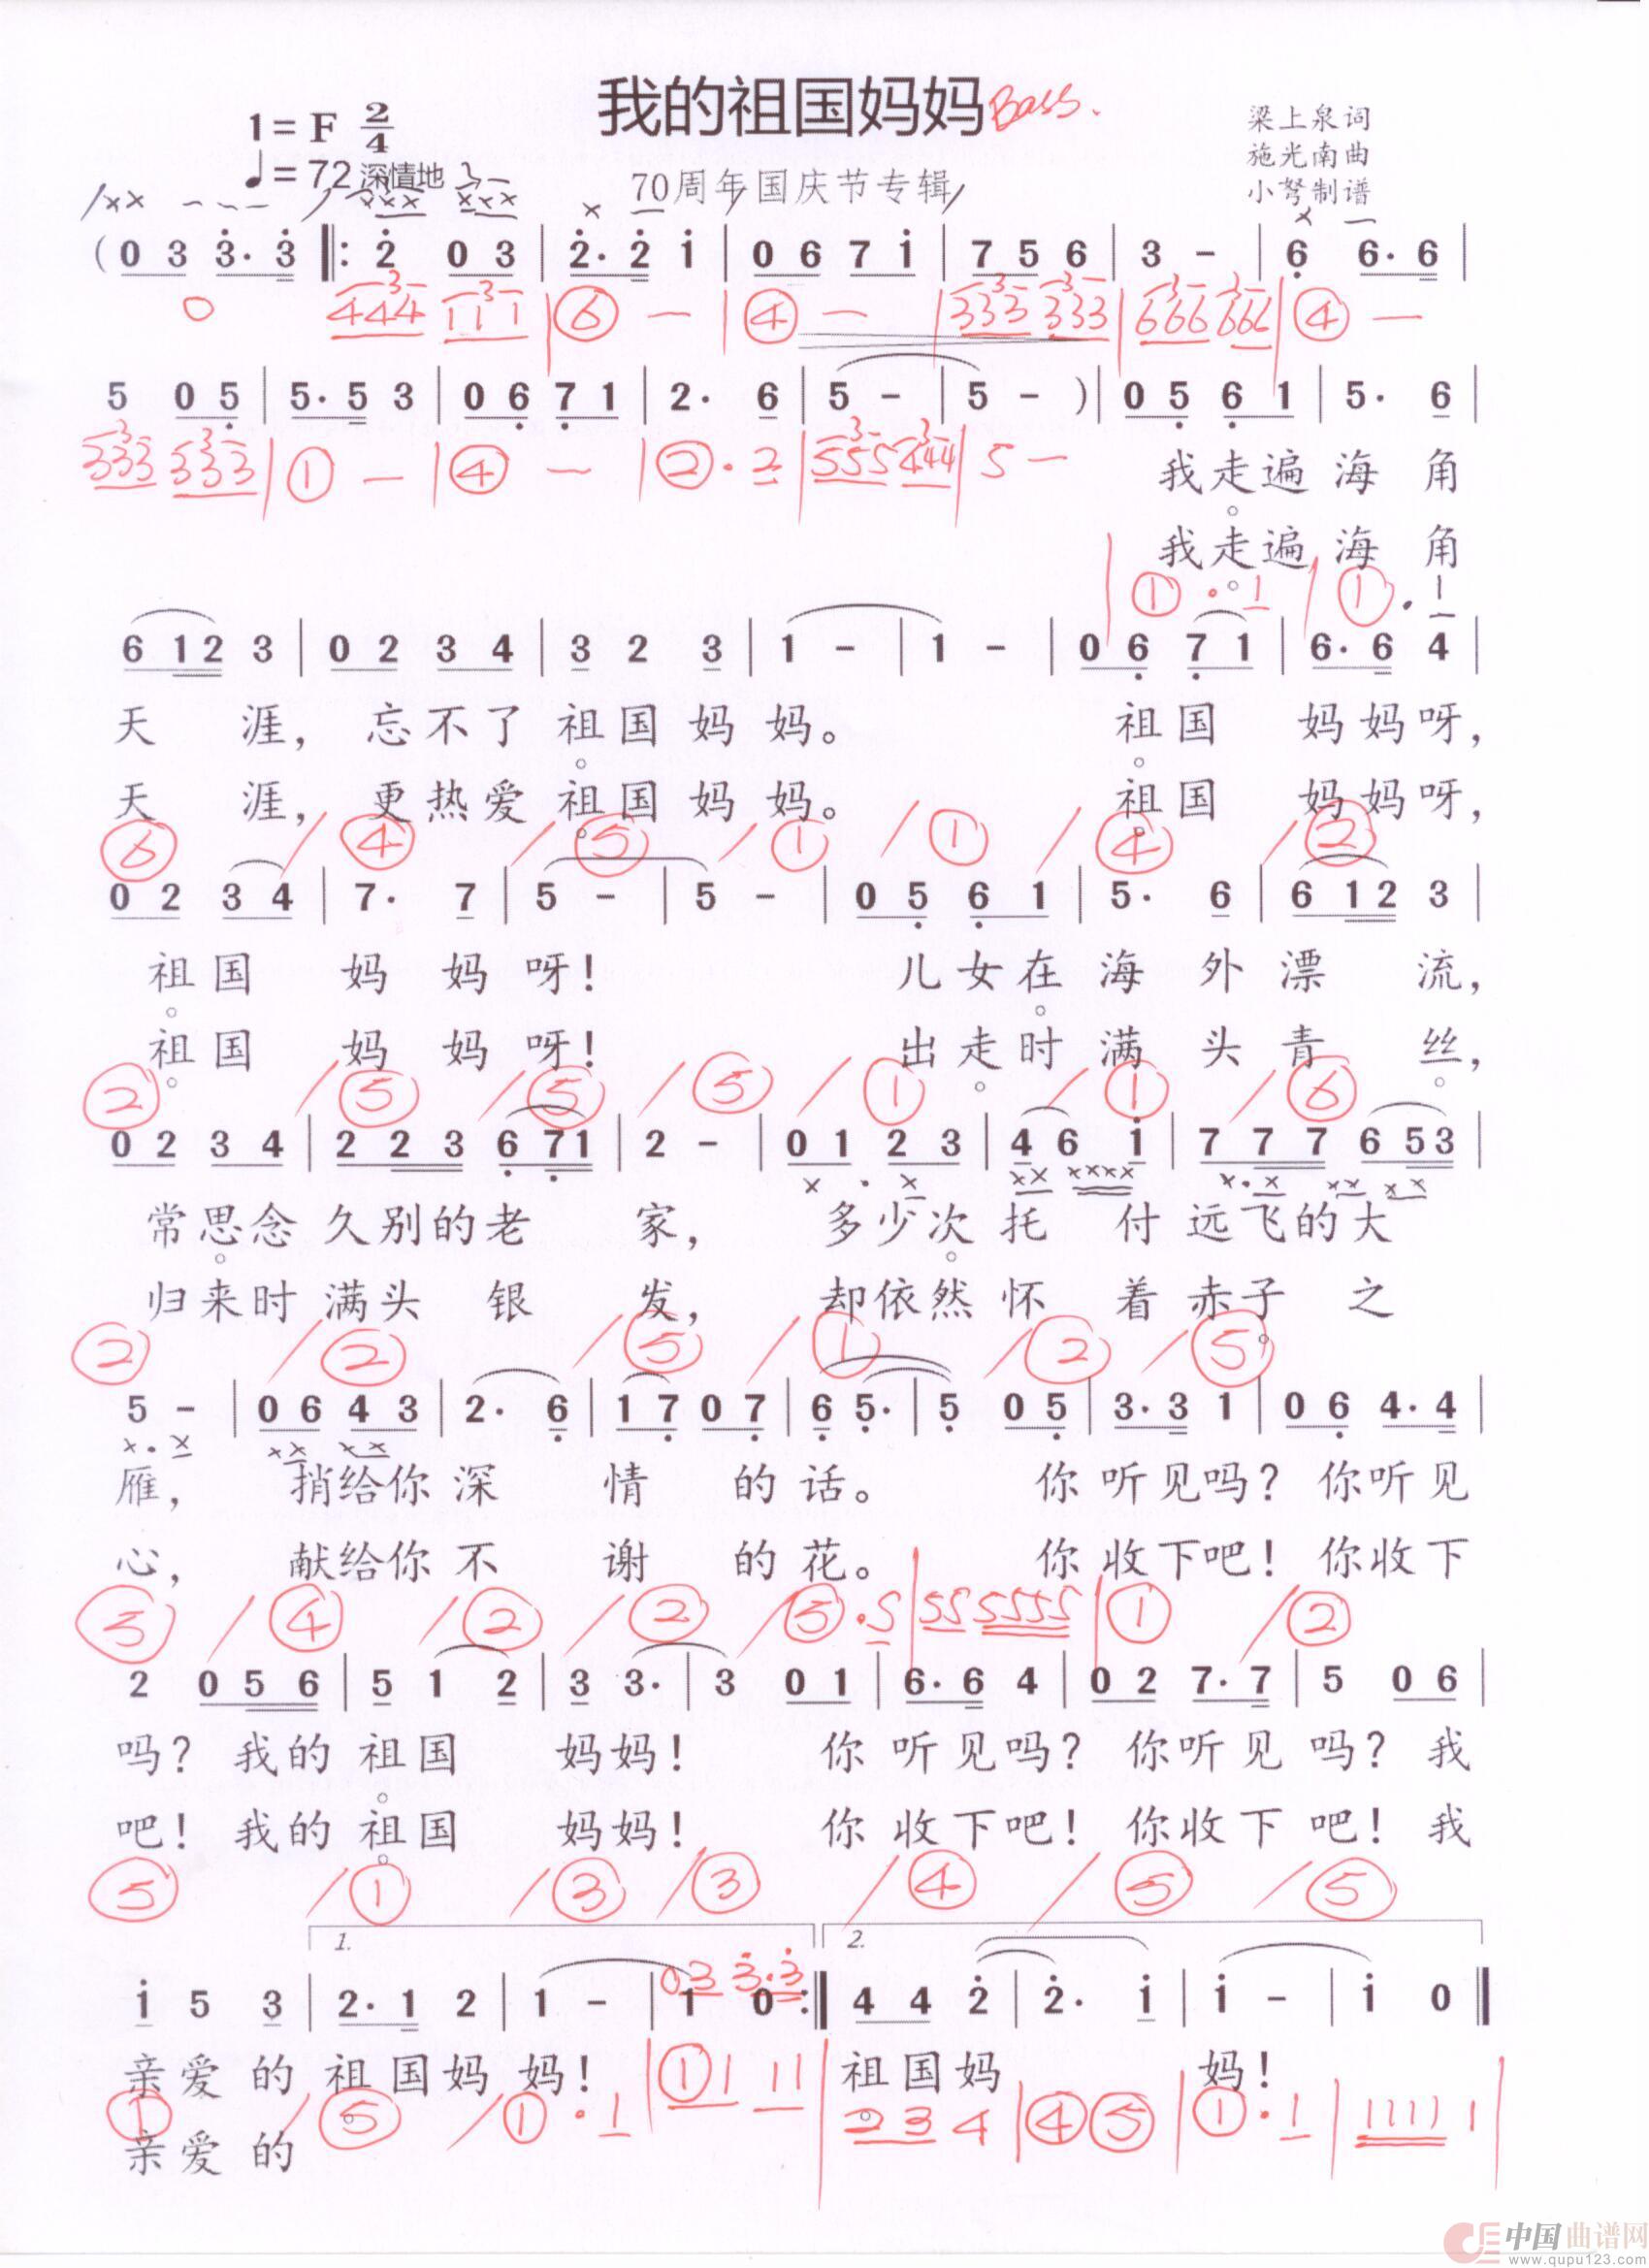 我的祖国妈妈 Bass.
1=F 2/4
♩=72 深情地
70周年国庆节专辑
梁上泉词
施光南曲
小弩制谱
(0 3 3·3 ‖: 2 0 3 | 2·2 1 | 0 6 7 1 | 7 5 6 | 3 - | 6 6·6 |
0 444 111 | ⑥ - | ④ - | 333 333 | 666 666 | ④ - |
5 0 5 | 5·5 3 | 0 6 7 1 | 2· 6 | 5 - | 5 - ) | 0 5 6 1 | 5· 6 |
333 333 | ① - | ④ - | ②·2 | 555 444 | 5 -
我走遍海角
我走遍海角
①·1 | ①·1
6 12 3 | 0 2 3 4 | 3 2 3 | 1 - | 1 - | 0 6 7 1 | 6·6 4 |
天 涯，忘不了祖国妈妈。 祖国 妈妈呀，
天 涯，更热爱祖国妈妈。 祖国 妈妈呀，
⑥ / ④ / ⑤ / ① / ① / ④ / ②
0 2 3 4 | 7· 7 | 5 - | 5 - | 0 5 6 1 | 5· 6 | 6 12 3 |
祖国 妈 妈 呀！ 儿女在海 外漂 流，
祖国 妈 妈 呀！ 出走时满 头青 丝，
② / ⑤ / ⑤ / ⑤ / ① / ① / ⑥
0 2 3 4 | 2 2 3 6 71 | 2 - | 0 1 2 3 | 4 6 1 | 7 7 7 6 53 |
常思念久别的老 家， 多少次托 付远飞的大
归来时满头 银 发， 却依然怀 着赤子 之
② / ② / ⑤ / ① / ② / ⑤
5 - | 0 6 4 3 | 2· 6 | 1 7 0 7 | 6 5· | 5 0 5 | 3·3 1 | 0 6 4·4 |
雁， 捎给你深 情 的话。 你听见吗？你听见
心， 献给你不 谢 的花。 你收下吧！你收下
⑤ / ④ / ② / ② / ⑤·5 | 55 5555 | ① / ②
2 0 5 6 | 5 1 2 | 3 3· | 3 0 1 | 6·6 4 | 0 2 7·7 | 5 0 6 |
吗？我的祖国 妈妈！ 你听见吗？你听见吗？我
吧！我的祖国 妈妈！ 你收下吧！你收下吧！我
⑤ / ① / ③ / ③ / ④ / ⑤ / ⑤
1. 2.
03 3·3
1 5 3 | 2·1 2 | 1 - | 1 0 :‖ 4 4 2 | 2· 1 | 1 - | 1 0 ‖
亲爱的祖国妈妈！ 祖国妈 妈！
① / ⑤ / ①·1 | ①1 11 | 23 4 | ④⑤ | ①·1 | 1111 1 |
亲爱的
中国曲谱网
www.qupu123.com